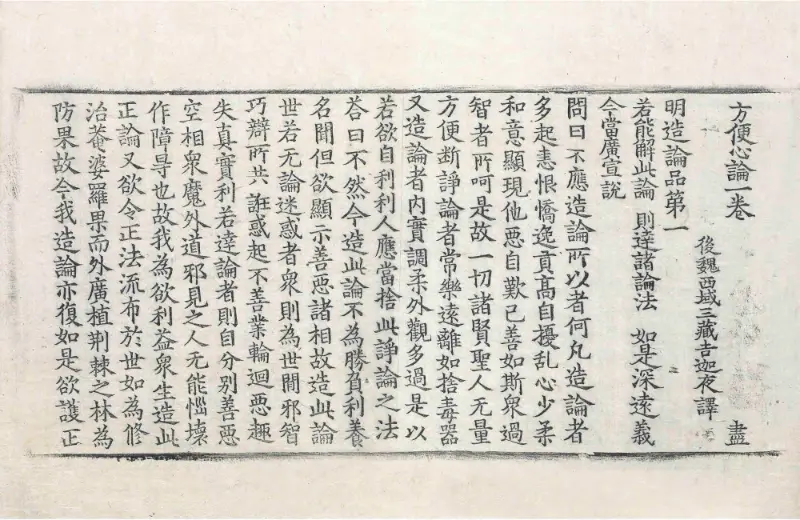 方便心論一卷 盡
後魏西域三藏吉迦夜譯
明造論品第一
若能解此論 則達諸論法 如是深遠義
今當廣宣說
問曰不應造論所以者何凡造論者
多起恚恨憍逸貢高自擾乱心少柔
和意顯現他惡自歎己善如斯衆過
智者所呵是故一切諸賢聖人无量
方便断諍論者常樂遠離如捨毒器
又造論者內實調柔外觀多過是以
若欲自利利人應當捨此諍論之法
荅曰不然今造此論不為勝負利養
名聞但欲顯示善惡諸相故造此論
世若无論迷惑者衆則為世閒邪智
巧辯所共誑惑起不善業輪迴惡趣
失真實利若達論者則自分別善惡
空相衆魔外道邪見之人无能惱壞
作障㝵也故我為欲利益衆生造此
正論又欲令正法流布於世如為修
治菴婆羅果而外廣植荆棘之林為
防果故今我造論亦復如是欲護正